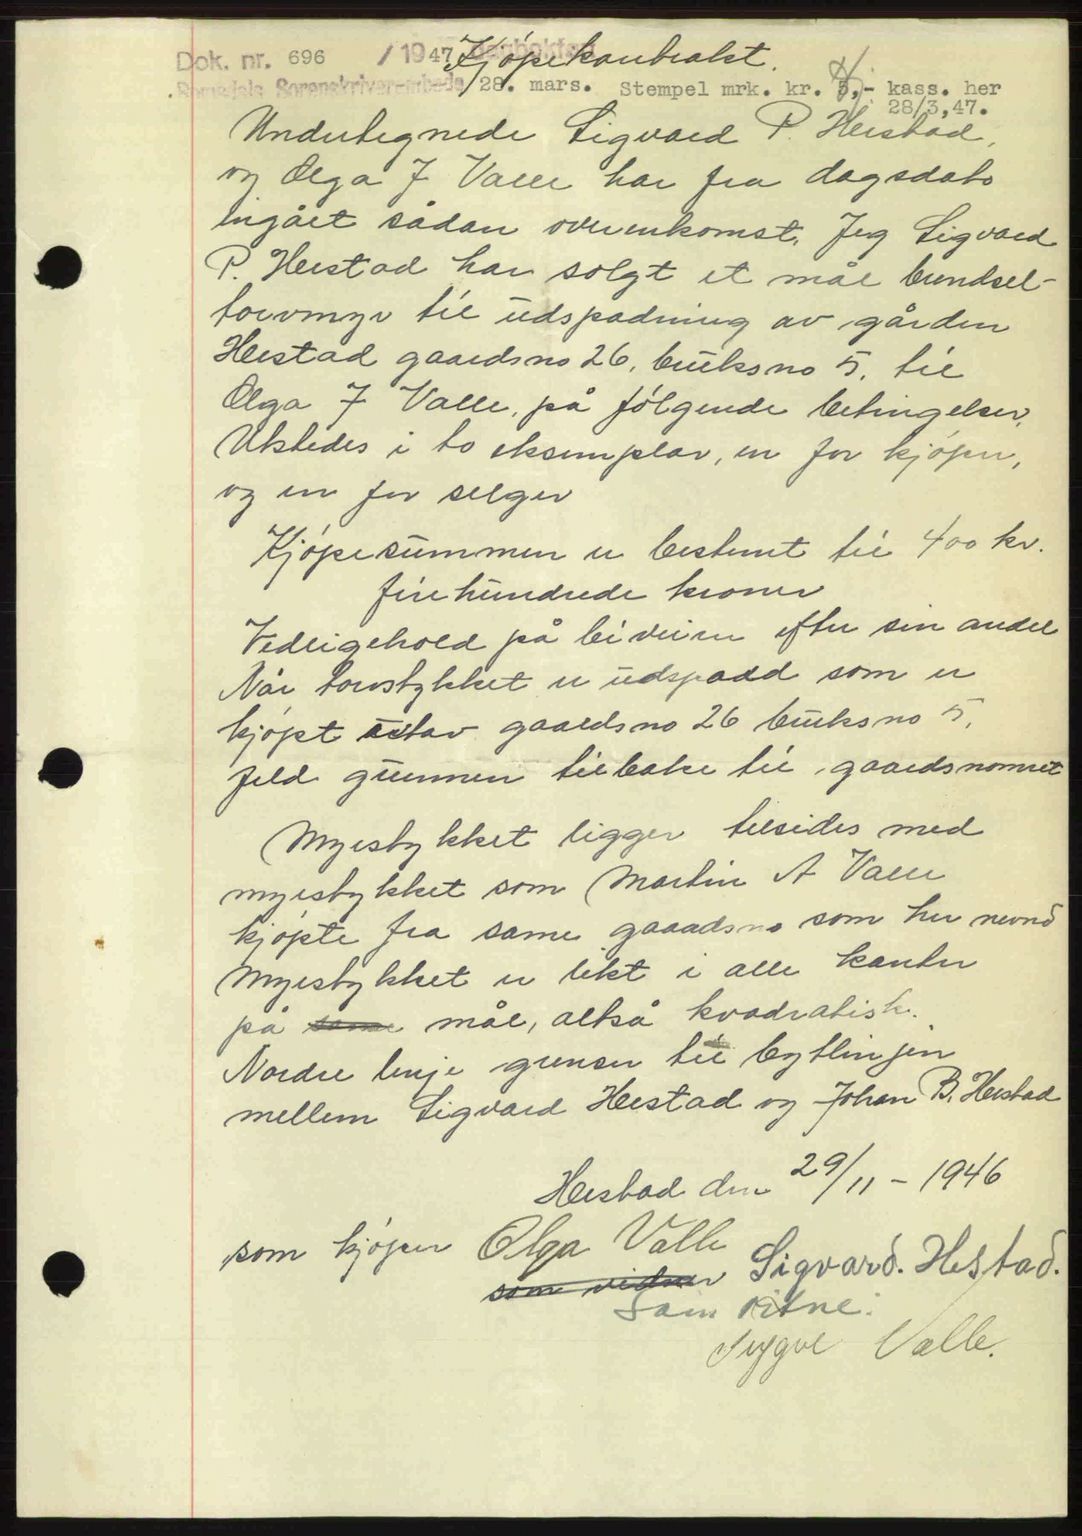 Dok. nr. 696 / 1947 Dagboktatt
Kjøpekontrakt.
Romsdals Sorenskriverembede 28. mars. Stempel mrk. kr. 5,- kass. her
28/3,47.
Undertegnede Sigvard P. Herstad,
og Olga J Valle har fra dagsdato
ingået sådan overenkomst. Jeg Sigvard
P. Herstad har solgt et mål brendsel-
torvmyr til üdspadning av gården
Herstad gaardsno 26, brüksno 5, til
Olga J Valle, på følgende betingelser,
Utstedes i to eksemplar, en for kjøper,
og en for selger
Kjøpesümmen er bestemt til 400 kr.
firehündrede kroner
Vedligehold på biveien efter sin andel
Når torvstykket er üdspadd som er
kjøpt av gaardsno 26 brüksno 5,
feld grünnen tilbake til gaardsnomret
Myrstykket ligger tilsides med
myrstykket som Martin A Valle
kjøpte fra same gaardsno som her nevnd
Myrstykket er likt i alle kanter
på same mål, altså kvadratisk.
Nordre linje grenser til bytlinjen
mellem Sigvard Herstad og Johan B. Herstad
Herstad den 29/11 - 1946
som kjøper Olga Valle
Sigvard. Hestad.
som vidner
Som vitne:
Trygve Valle.